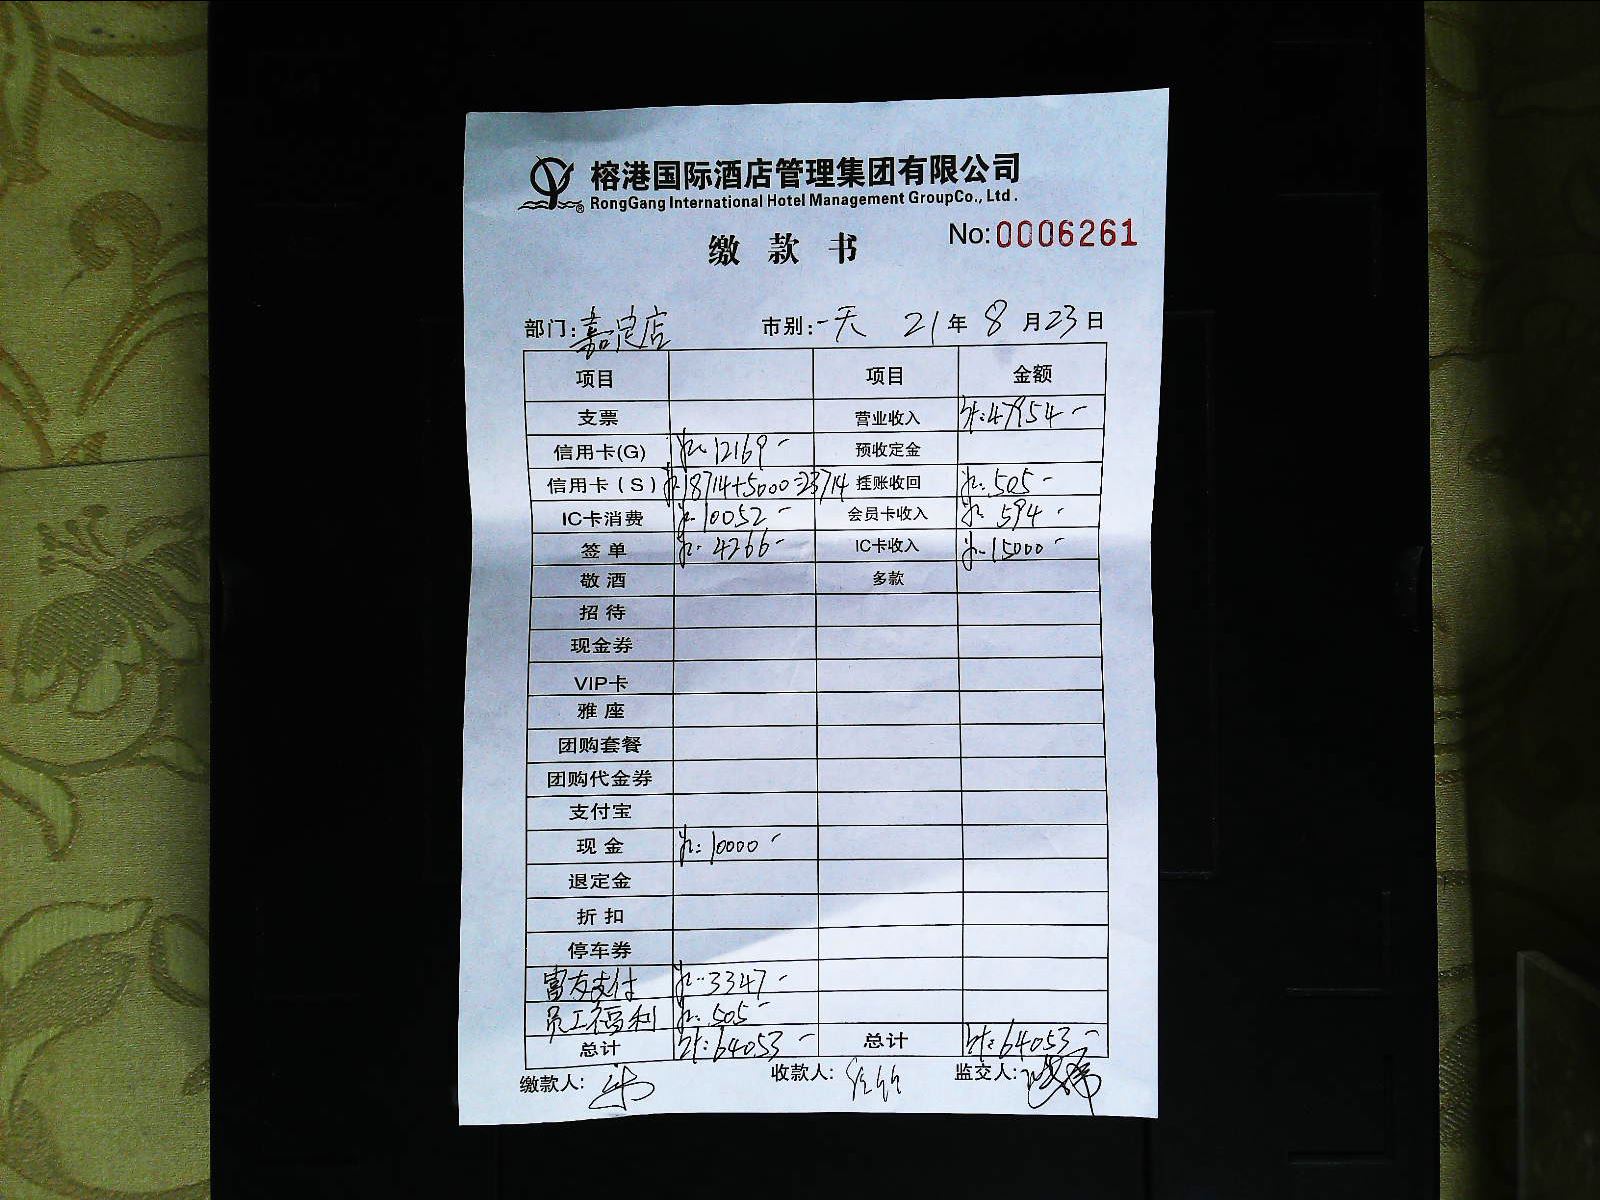 榕港国际酒店管理集团有限公司
RongGang International Hotel Management GroupCo., Ltd.
No:0006261
缴款书
部门: 嘉定店 市别: 一天 21年8月23日
项目 项目 金额
支票 营业收入 计:47954-
信用卡(G) 12169- 预收定金
信用卡(S) 18714+5000=23714 挂账收回 505-
IC卡消费 10052- 会员卡收入 594-
签单 4266- IC卡收入 15000-
敬酒 多款
招待
现金券
VIP卡
雅座
团购套餐
团购代金券
支付宝
现金 10000-
退定金
折扣
停车券
富友支付 3347-
员工福利 505-
总计 计:64053- 总计 计:64053-
缴款人: 收款人: 监交人: